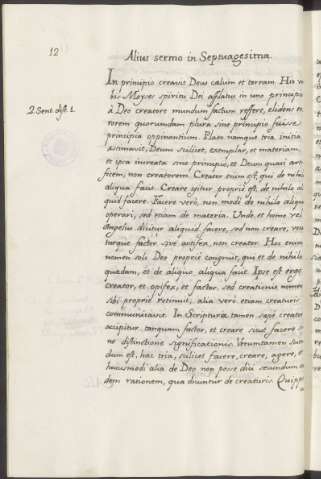 12
Alius sermo in Septuagesima.
In principio creavit Deus cælum et terram. His ver
bis Moyses spiritu Dei afflatus in uno principio
2 Sent. dist. 1. à Deo creatore mundum factum refert, elidens er
rorem quorundam plura sine principio fuisse
principia opinantium. Plato namque tria initia
æstimavit, Deum scilicet, exemplar, et materiam,
et ipsa increata sine principio, et Deum quasi arti
ficem, non creatorem. Creator enim est, qui de nihilo
aliqua facit. Creare igitur proprie est, de nihilo ali
quid facere. Facere vero, non modo de nihilo aliquid
operari, sed etiam de materia. Unde et homo vel
Angelus dicitur aliquid facere, sed non creare, voca
turque factor sive artifex, non creator. Hoc enim
nomen soli Deo proprie congruit, qui et de nihilo
quædam, et de aliquo aliqua facit. Ipse est ergo
Creator, et opifex, et factor. sed creationis nomen
sibi proprie retinuit, alia vero etiam creaturis
communicavit. In Scriptura tamen sæpe creator
accipitur tanquam factor, et creare sicut facere si
ne distinctione significationis. Verumtamen scien
dum est, hæc tria, scilicet facere, creare, agere, et
huiusmodi alia de Deo non posse dici secundum ean
dem rationem, qua dicuntur de creaturis. Quippe